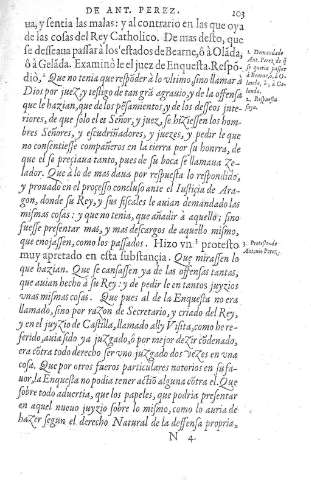 DE ANT. PEREZ. 103
ua, y sentia las malas: y al contrario en las que oya
de las cosas del Rey Catholico. De mas desto, que
se desseaua passar à los estados de Bearne, ô à Oláda,
ô à Geláda. Examinò le el juez de Enquesta. Respõ-
diò, Que no tenia que respõder à lo vltimo, sino llamar à
Dios por juez y testigo de tan grã agrauio, y de la offensa
que le hazian, que de los pẽsamientos, y de los desseos inte-
riores, de que solo el es Señor, y juez, se hiziessen los hom-
bres Señores, y escudriñadores, y juezes, y pedir le que
no consentiesse compañeros en la tierra por su honrra, de
que el se preçiaua tanto, pues de su boca se llamaua Ze-
lador. Que à lo de mas daua por respuesta lo respondido,
y prouado en el processo concluso ante el Iusticia de Ara-
gon, donde su Rey, y sus fiscales le auian demandado las
mismas cosas: y que no tenia, que añadir à aquello; sino
fuesse presentar mas, y mas descargos de aquello mismo,
que enojassen, como los passados. Hizo vn protesto
muy apretado en esta substançia. Que mirassen lo
que hazian. Que se cansassen ya de las offensas tantas,
que auian hecho à su Rey: y de pedir le en tantos juyzios
vnas mismas cosas. Que pues al de la Enquesta no era
llamado, sino por razon de Secretario, y criado del Rey,
y en el juyzio de Castilla, llamado ally Visita, como he re-
ferido, auia sido ya juzgado, ô por mejor dezir cõdenado,
era cõtra todo derecho ser vno juzgado dos vezes en vna
cosa. Que por otros fueros particulares notorios en su fa-
uor, la Enquesta no podia tener actiõ alguna cõtra el. Que
sobre todo aduertia, que los papeles, que podria presentar
en aquel nueuo juyzio sobre lo mismo, como lo auria de
hazer segun el derecho Natural de la deffensa propria,
N 4
1. Demandado
Ant. Perez, de q̃
se queria passar
à Bearne, ô, à O-
landa, ô, à Ge-
landa.
2. Respuesta
suya.
3. Protesto de
Antonio Perez.